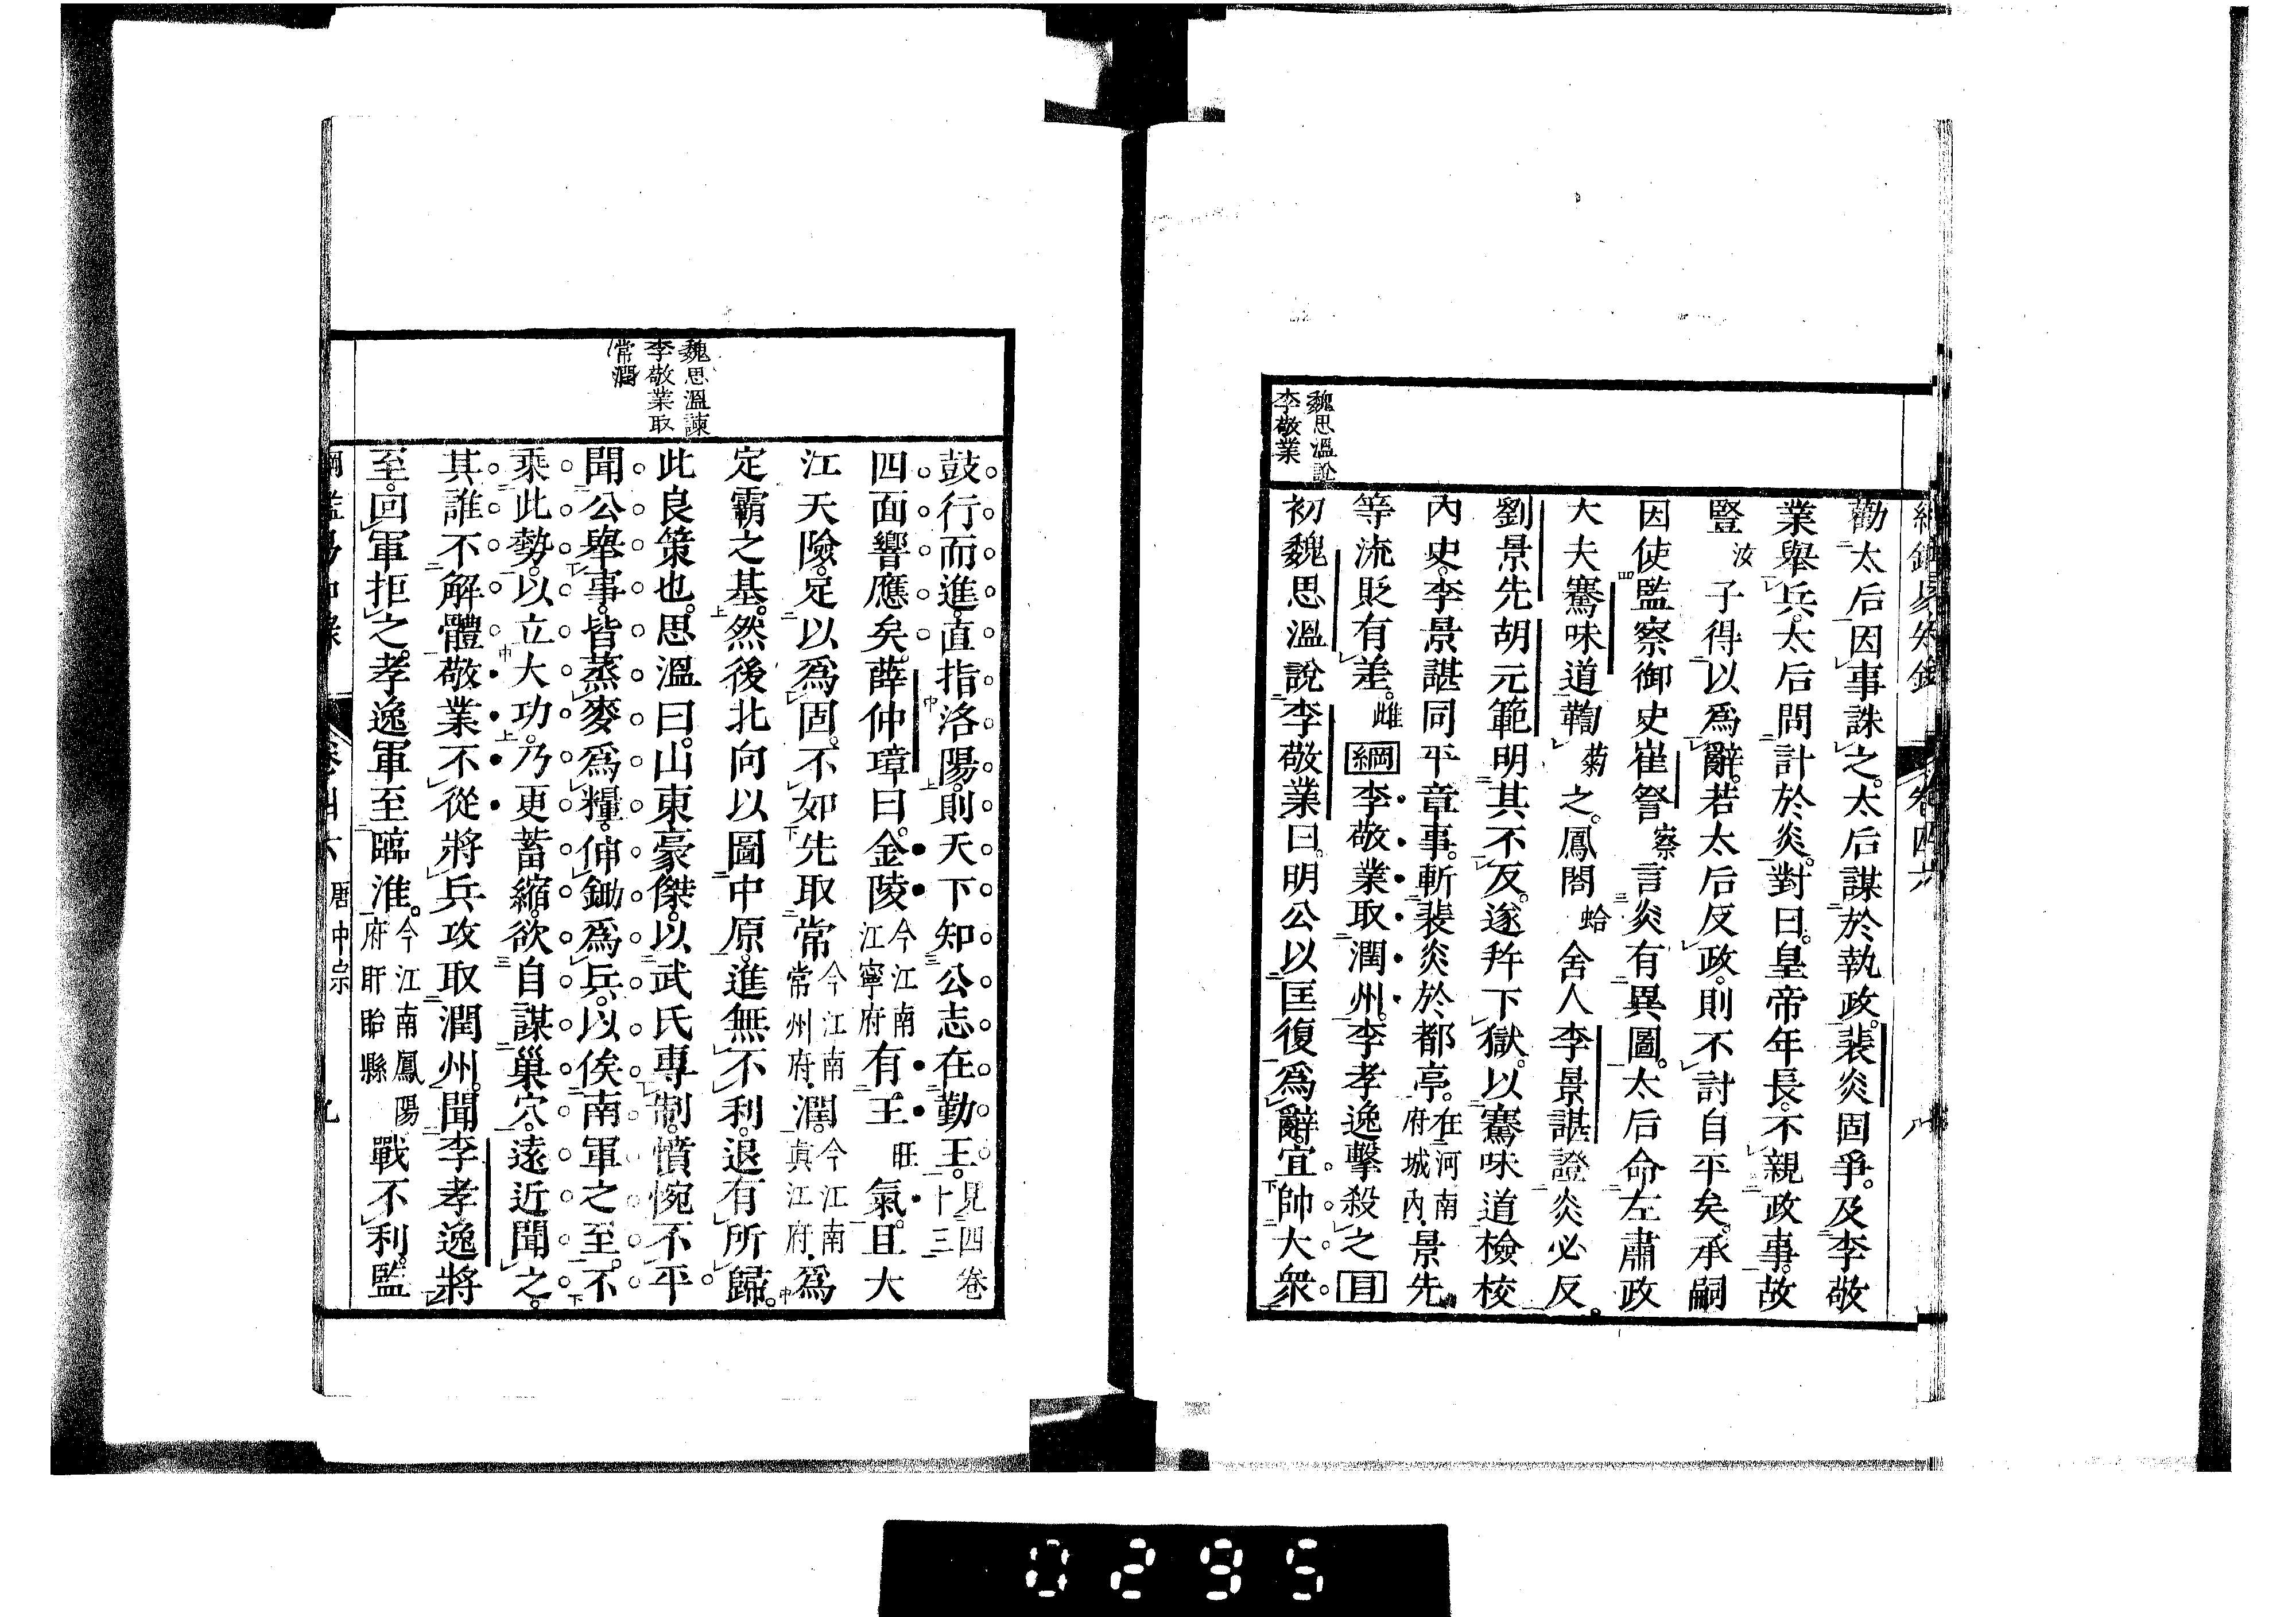 魏思溫說
李敬業
勸太后因事誅之。太后謀於執政。裴炎固爭。及李敬
業舉兵。太后問計於炎。對曰。皇帝年長。不親政事。故
豎汝子得以爲辭。若太后反政。則不討自平矣。承嗣
因使監察御史崔詧察言炎有異圖。太后命左肅政
大夫騫味道鞫菊之。鳳閣蛤舍人李景諶證炎必反。
劉景先胡元範明其不反。遂幷下獄。以騫味道檢校
內史。李景諶同平章事。斬裴炎於都亭。在河南府城內。景先
等流貶有差。雌綱李敬業取潤州。李孝逸擊殺之目
初魏思溫說李敬業曰。明公以匡復爲辭。宜帥大衆。
魏思溫諫
李敬業取
常潤
鼓行而進。直指洛陽。則天下知公志在勤王。見四卷十三
四面響應矣。薛仲璋曰。金陵今江南江寧府有王旺氣。且大
江天險。足以爲固。不如先取常今江南常州府・潤。今江南眞江府・爲
定霸之基。然後北向以圖中原。進無不利。退有所歸。
此良策也。思溫曰。山東豪傑。以武氏專制。憤惋不平
聞公舉事。皆蒸麥爲糧。伸鋤爲兵。以俟南軍之至。不
乘此勢。以立大功。乃更蓄縮。欲自謀巢穴。遠近聞之。
其誰不解體敬業不從將兵攻取潤州。聞李孝逸將
至。回軍拒之。孝逸軍至臨淮。今江南鳳陽府盱眙縣戰不利。監
唐中宗